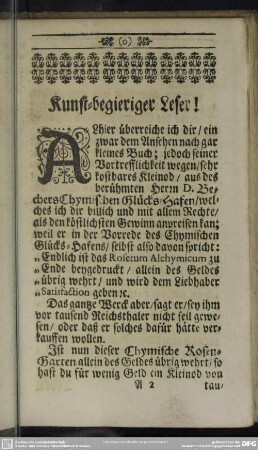 (o)
Kunst-begieriger Leser!
ALhier überreiche ich dir / ein
zwar dem Ansehen nach gar
kleines Buch; jedoch seiner
Vortreflichkeit wegen / sehr
kostbares Kleinod / aus des
berühmten Herrn D. Be-
chers Chymischen Glücks-Hafen / wel-
ches ich dir billich und mit allem Rechte /
als den köstlichsten Gewinn anpreisen kan;
weil er in der Vorrede des Chymischen
Glücks-Hafens / selbst also davon spricht:
„ Endlich ist das Rosetum Alchymicum zu
„ Ende beygedruckt / allein des Geldes
„ übrig wehrt / und wird dem Liebhaber
„ Satisfaction geben ꝛc.
Das gantze Werck aber / sagt er / sey ihm
vor tausend Reichsthaler nicht feil gewe-
sen / oder daß er solches dafür hätte ver-
kauffen wollen.
Ist nun dieser Chymische Rosen-
Garten allein des Geldes übrig wehrt / so
hast du für wenig Geld ein Kleinod von
A 2 tau-